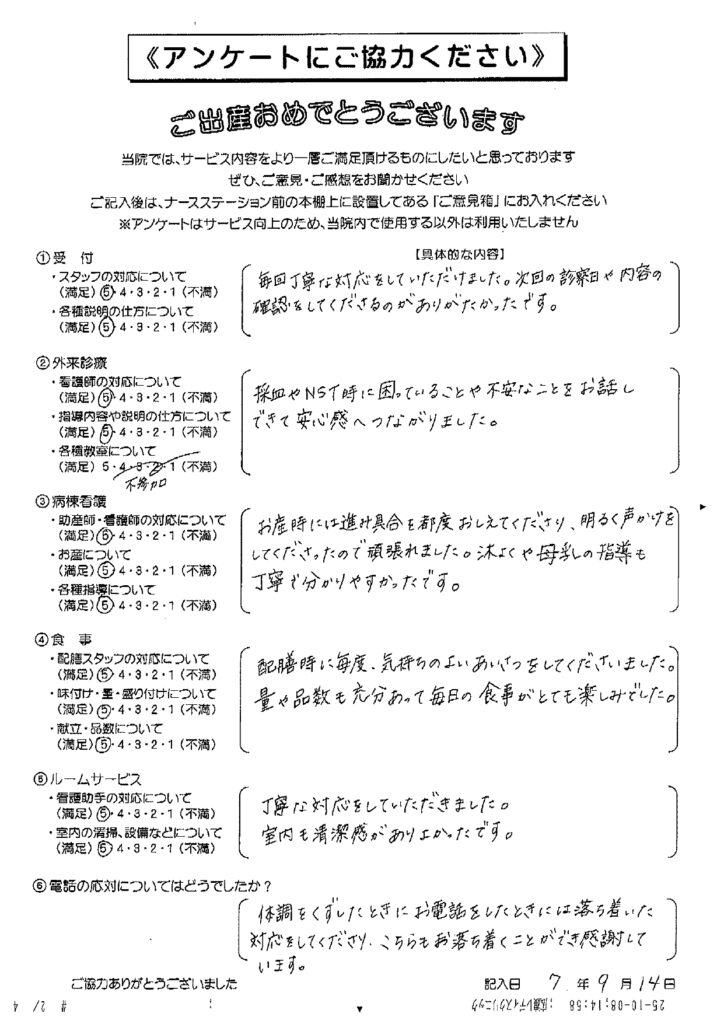 《アンケートにご協力ください》
ご出産おめでとうございます
当院では、サービス内容をより一層ご満足頂けるものにしたいと思っております
ぜひ、ご意見・ご感想をお聞かせください
ご記入後は、ナースステーション前の本棚上に設置してある「ご意見箱」にお入れください
※アンケートはサービス向上のため、当院内で使用する以外は利用いたしません
①受 付
【具体的な内容】
・スタッフの対応について
(満足) 5・4・3・2・1 (不満)
・各種説明の仕方について
(満足) 5・4・3・2・1 (不満)
毎回丁寧な対応をしていただけました。次回の診察日や内容の
確認をしてくださるのがありがたかったです。
②外来診療
・看護師の対応について
(満足) 5・4・3・2・1 (不満)
・指導内容や説明の仕方について
(満足) 5・4・3・2・1 (不満)
・各種教室について
(満足) 5・4・3・2・1 (不満)
不参加
採血やNST時に困っていることや不安なことをお話し
できて安心感へつながりました。
③病棟看護
・助産師・看護師の対応について
(満足) 5・4・3・2・1 (不満)
・お産について
(満足) 5・4・3・2・1 (不満)
・各種指導について
(満足) 5・4・3・2・1 (不満)
お産時には進み具合を都度おしえてくださり、明るく声かけを
してくださったので頑張れました。沐よくや母乳の指導も
丁寧で分かりやすかったです。
④食 事
・配膳スタッフの対応について
(満足) 5・4・3・2・1 (不満)
・味付け・量・盛り付けについて
(満足) 5・4・3・2・1 (不満)
・献立・品数について
(満足) 5・4・3・2・1 (不満)
配膳時に毎度、気持ちのよいあいさつをしてくださいました。
量や品数も充分あって毎日の食事がとても楽しみでした。
⑤ルームサービス
・看護助手の対応について
(満足) 5・4・3・2・1 (不満)
・室内の清掃、設備などについて
(満足) 5・4・3・2・1 (不満)
丁寧な対応をしていただきました。
室内も清潔感がありよかったです。
⑥電話の応対についてはどうでしたか？
体調をくずしたときにお電話をしたときには落ち着いた
対応をしてくださり、こちらもお落ち着くことができ感謝して
います。
ご協力ありがとうございました
記入日 7 年 9 月 14 日
25-10-08;14:58
レディスクリニック
# 2/ 4